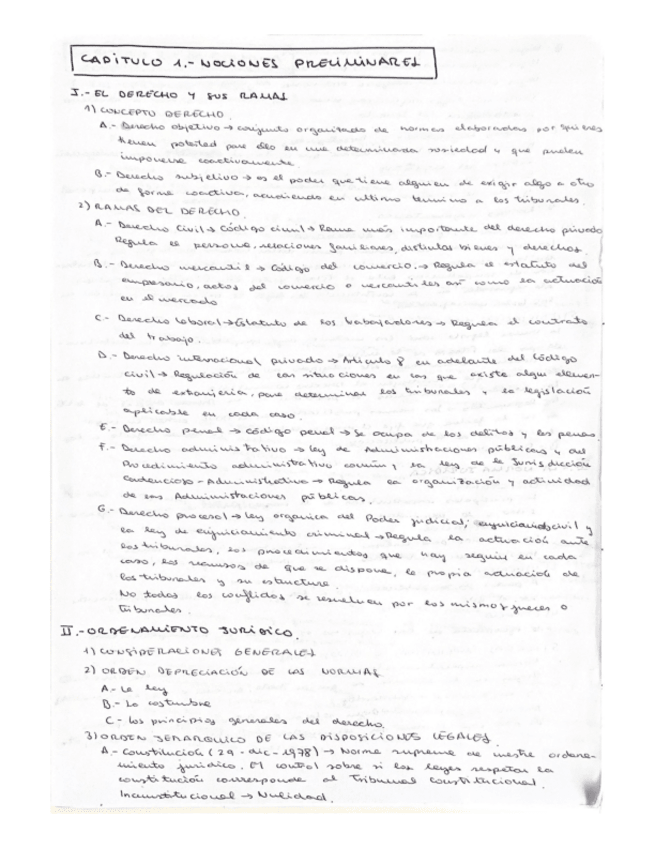 CAPÍTULO 1.- NOCIONES PRELIMINARES
I.- EL DERECHO Y SUS RAMAS
1) CONCEPTO DERECHO
A.- Derecho objetivo → conjunto organizado de normas elaboradas por quienes
tienen potestad para ello en una determinada sociedad y que pueden
imponerse coactivamente.
B.- Derecho subjetivo → es el poder que tiene alguien de exigir algo a otro
de forma coactiva, acudiendo en ultimo termino a los tribunales.
2) RAMAS DEL DERECHO.
A.- Derecho Civil → Código civil → Rama más importante del derecho privado
Regula el persona, relaciones familiares, distintos bienes y derechos.
B.- Derecho mercantil → Código del comercio. → Regula el estatuto del
empresario, actos del comercio o mercantiles así como la actuación
en el mercado
C.- Derecho laboral → Estatuto de los trabajadores → Regula el contrato
del trabajo.
D.- Derecho internacional privado → Artículo 8 en adelante del Código
civil → Regulación de las situaciones en las que existe algun elemen-
to de extranjería, para determinar los tribunales y la legislación
aplicable en cada caso.
E.- Derecho penal → Código penal → Se ocupa de los delitos y las penas.
F.- Derecho administrativo → Ley de Administraciones públicas y del
Procedimiento administrativo común, la ley de la Jurisdicción
Contencioso-Administrativo → Regula la organización y actividad
de las Administaciones públicas.
G.- Derecho procesal → Ley orgánica del Poder judicial, civil y
la ley de enjuiciamiento criminal → Regula la actuación ante
los tribunales, los procedimientos que hay seguir en cada
caso, los recursos de que se dispone, la propia actuación de
los tribunales y su estructura.
No todos los conflictos se resuelven por los mismos jueces o
tribunales.
II.- ORDENAMIENTO JURÍDICO.
1) CONSIDERACIONES GENERALES
2) ORDEN DEPRECIACIÓN DE LAS NORMAS
A.- La ley
B.- La costumbre
C.- Los principios generales del derecho.
3) ORDEN JERARQUICO DE LAS DISPOSICIONES LEGALES
A.- Constitución (29-dic-1978) → Norma suprema de nuestro ordena-
miento jurídico. El control sobre si las leyes respetan la
constitución corresponde al Tribunal Constitucional.
→ Nulidad.